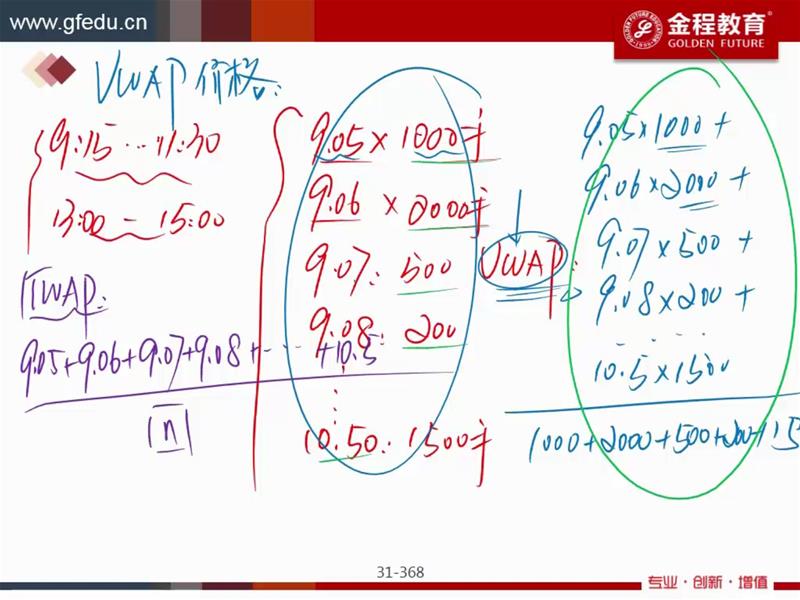 www.gfedu.cn
金程教育
GOLDEN FUTURE
VWAP 价格:
9:15 ... 11:30
13:00 - 15:00
TWAP:
9.05+9.06+9.07+9.08+ ... +10.5
n
9.05 × 1000手
9.06 × 2000手
9.07: 500
9.08: 200
10.50: 1500手
VWAP:
9.05×1000+
9.06×2000+
9.07×500+
9.08×200+
.....
10.5×1500
1000+2000+500+200+15
31-368
专业·创新·增值